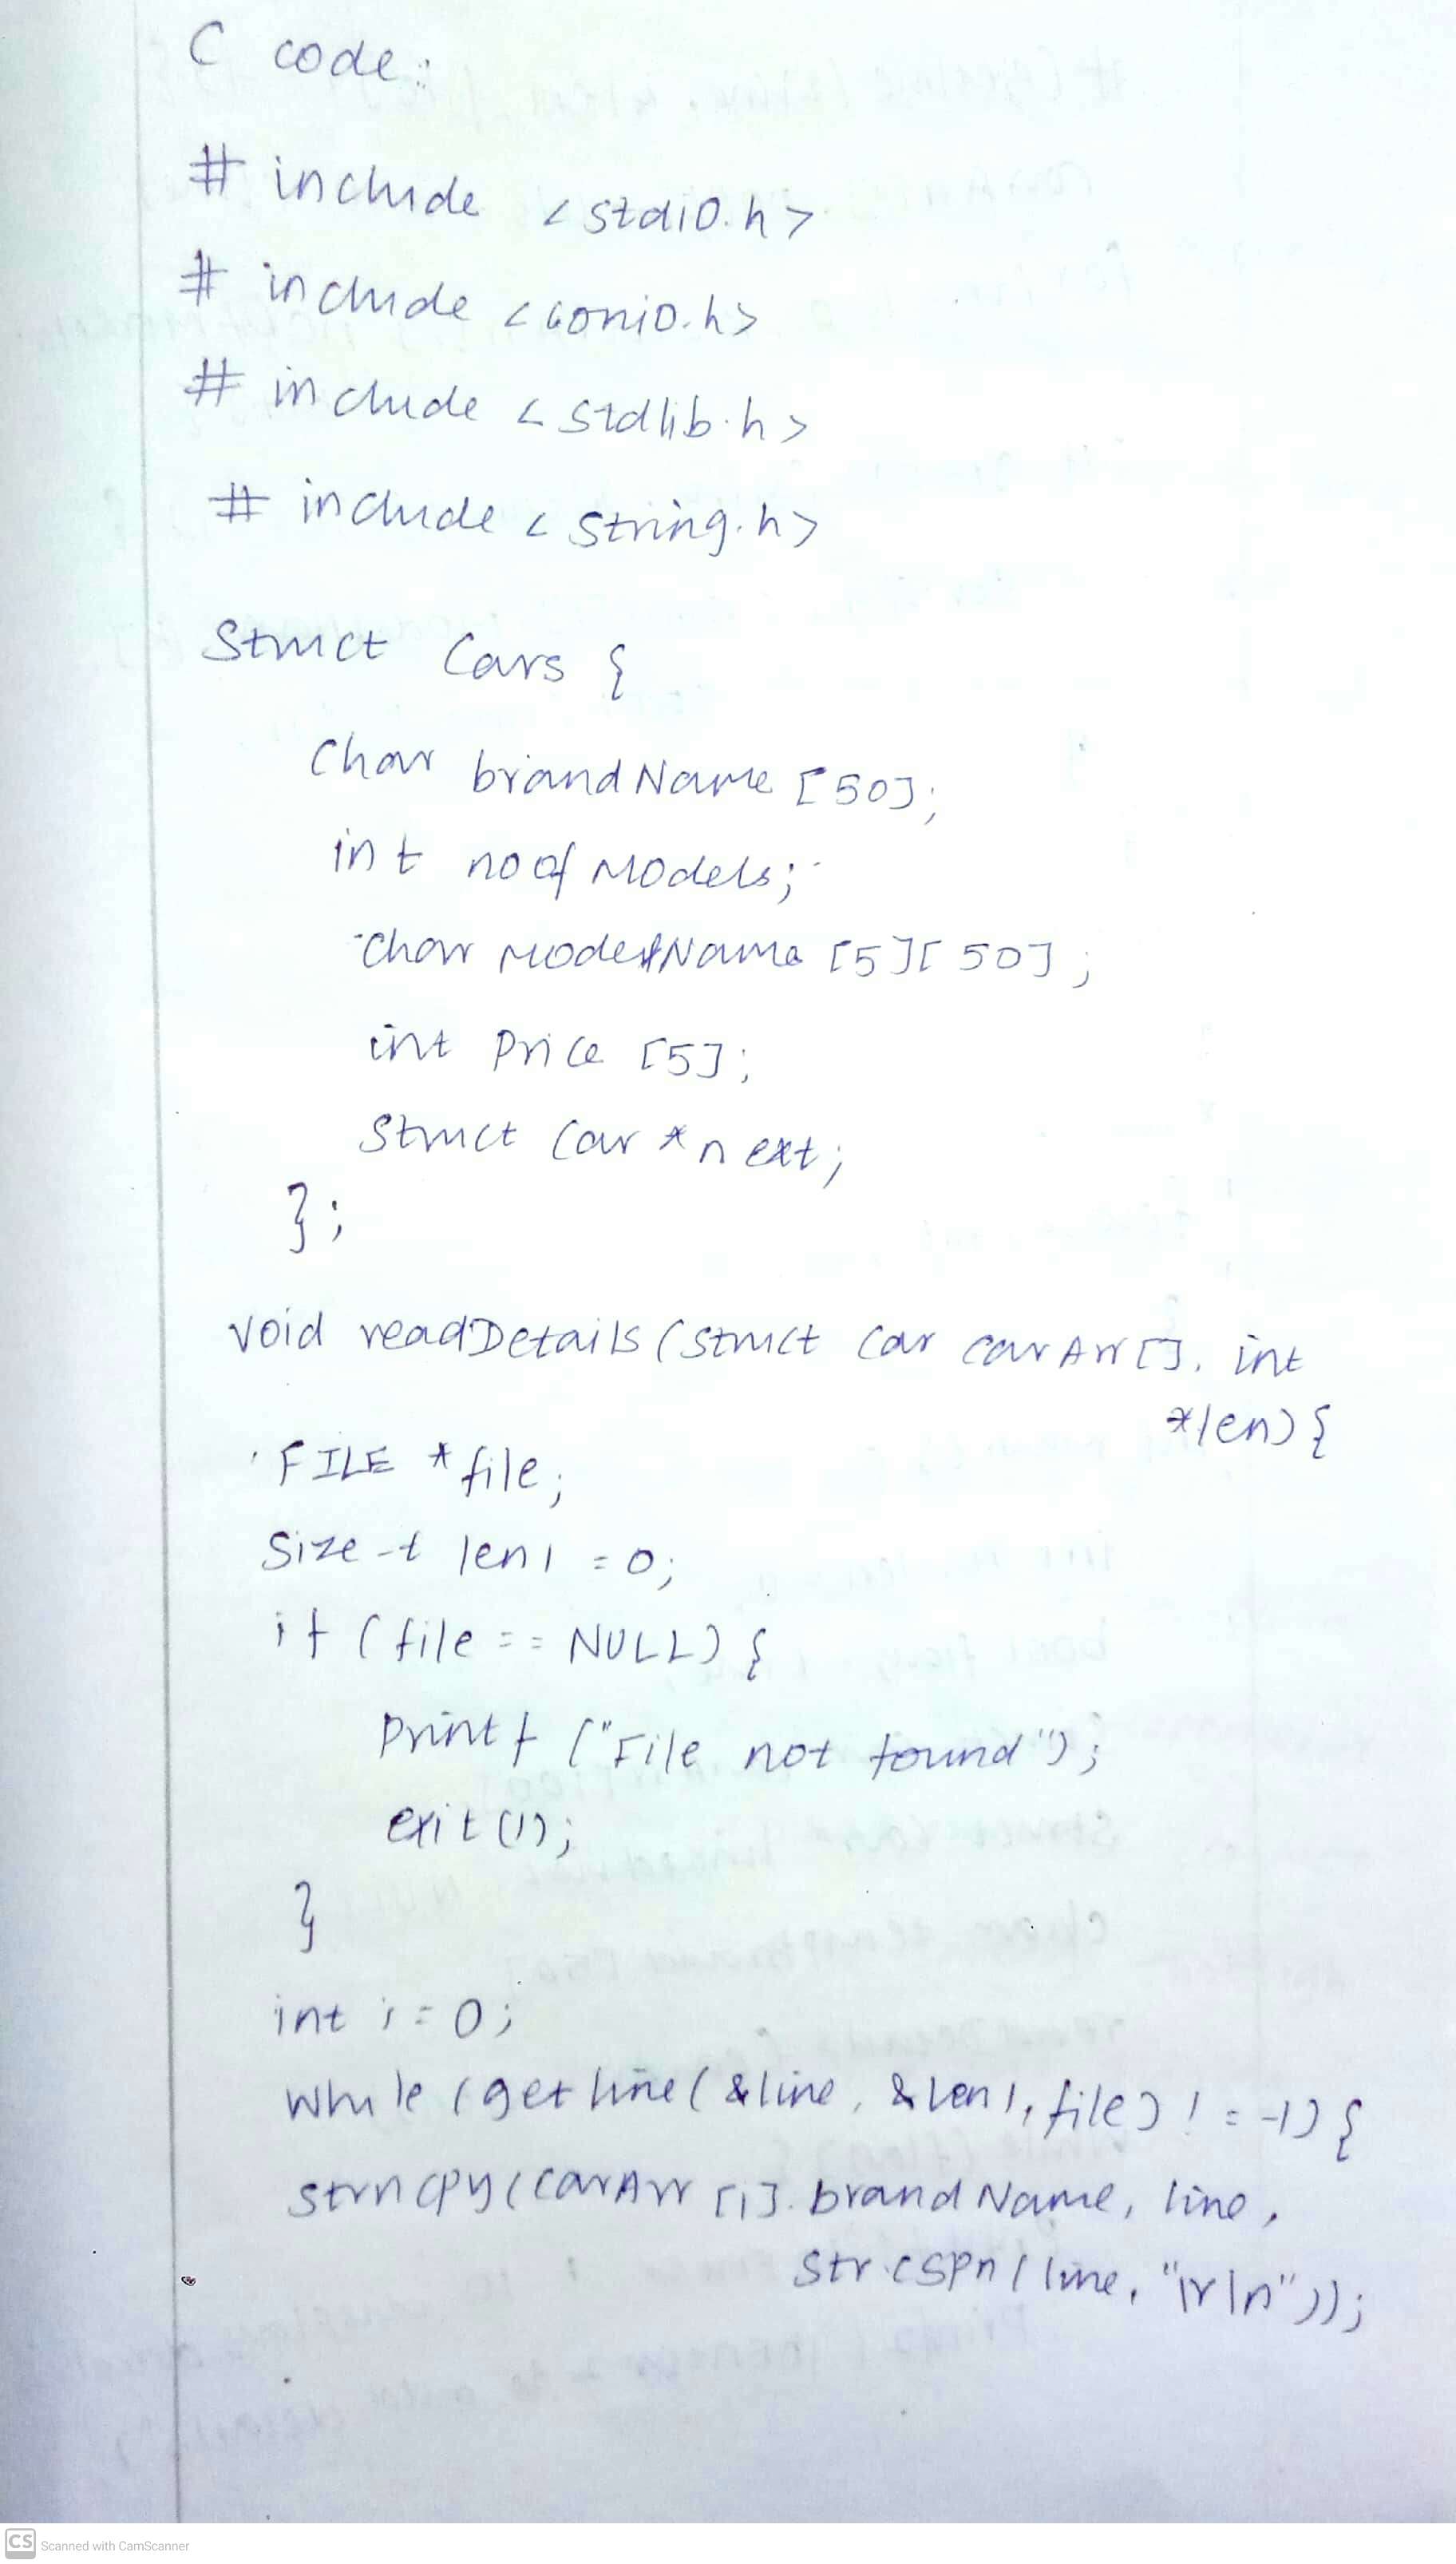 C code:
# include <stdio.h>
# include <conio.h>
# include <stdlib.h>
# include <string.h>
Struct Cars {
Char brandName [50];
int noofModels;
Char ModelName [5][50];
int Price [5];
Struct Car *next;
};
void readDetails (Struct Car carArr[], int
*len) {
FILE *file;
Size_t len1 = 0;
if (file == NULL) {
Printf ("File not found");
exit (1);
}
int i = 0;
While (getline (&line, &len1, file) != -1) {
strncpy (carArr [i]. brandName, line,
Strcspn (line, "\r\n"));
CS Scanned with CamScanner